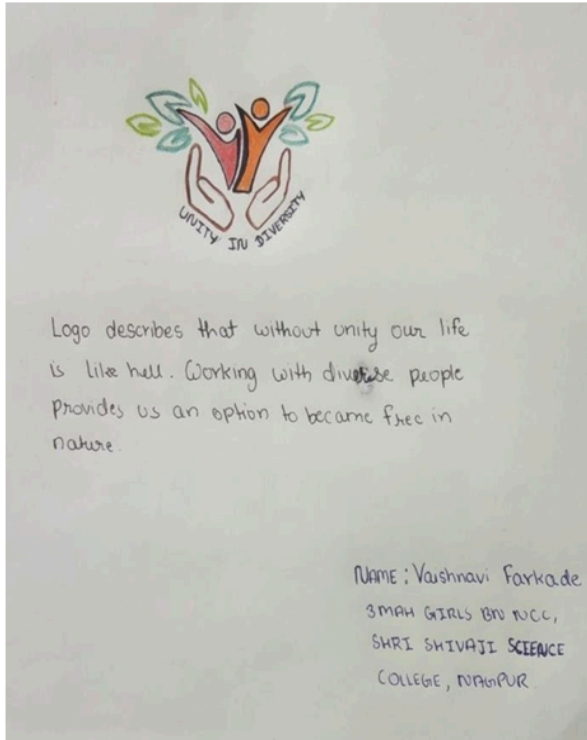 UNITY IN DIVERSITY
Logo describes that without unity our life
is like hell. Working with diverse people
provides us an option to became free in
nature.
NAME : Vaishnavi Farkade
3 MAH GIRLS BN NCC,
SHRI SHIVAJI SCIENCE
COLLEGE, NAGPUR